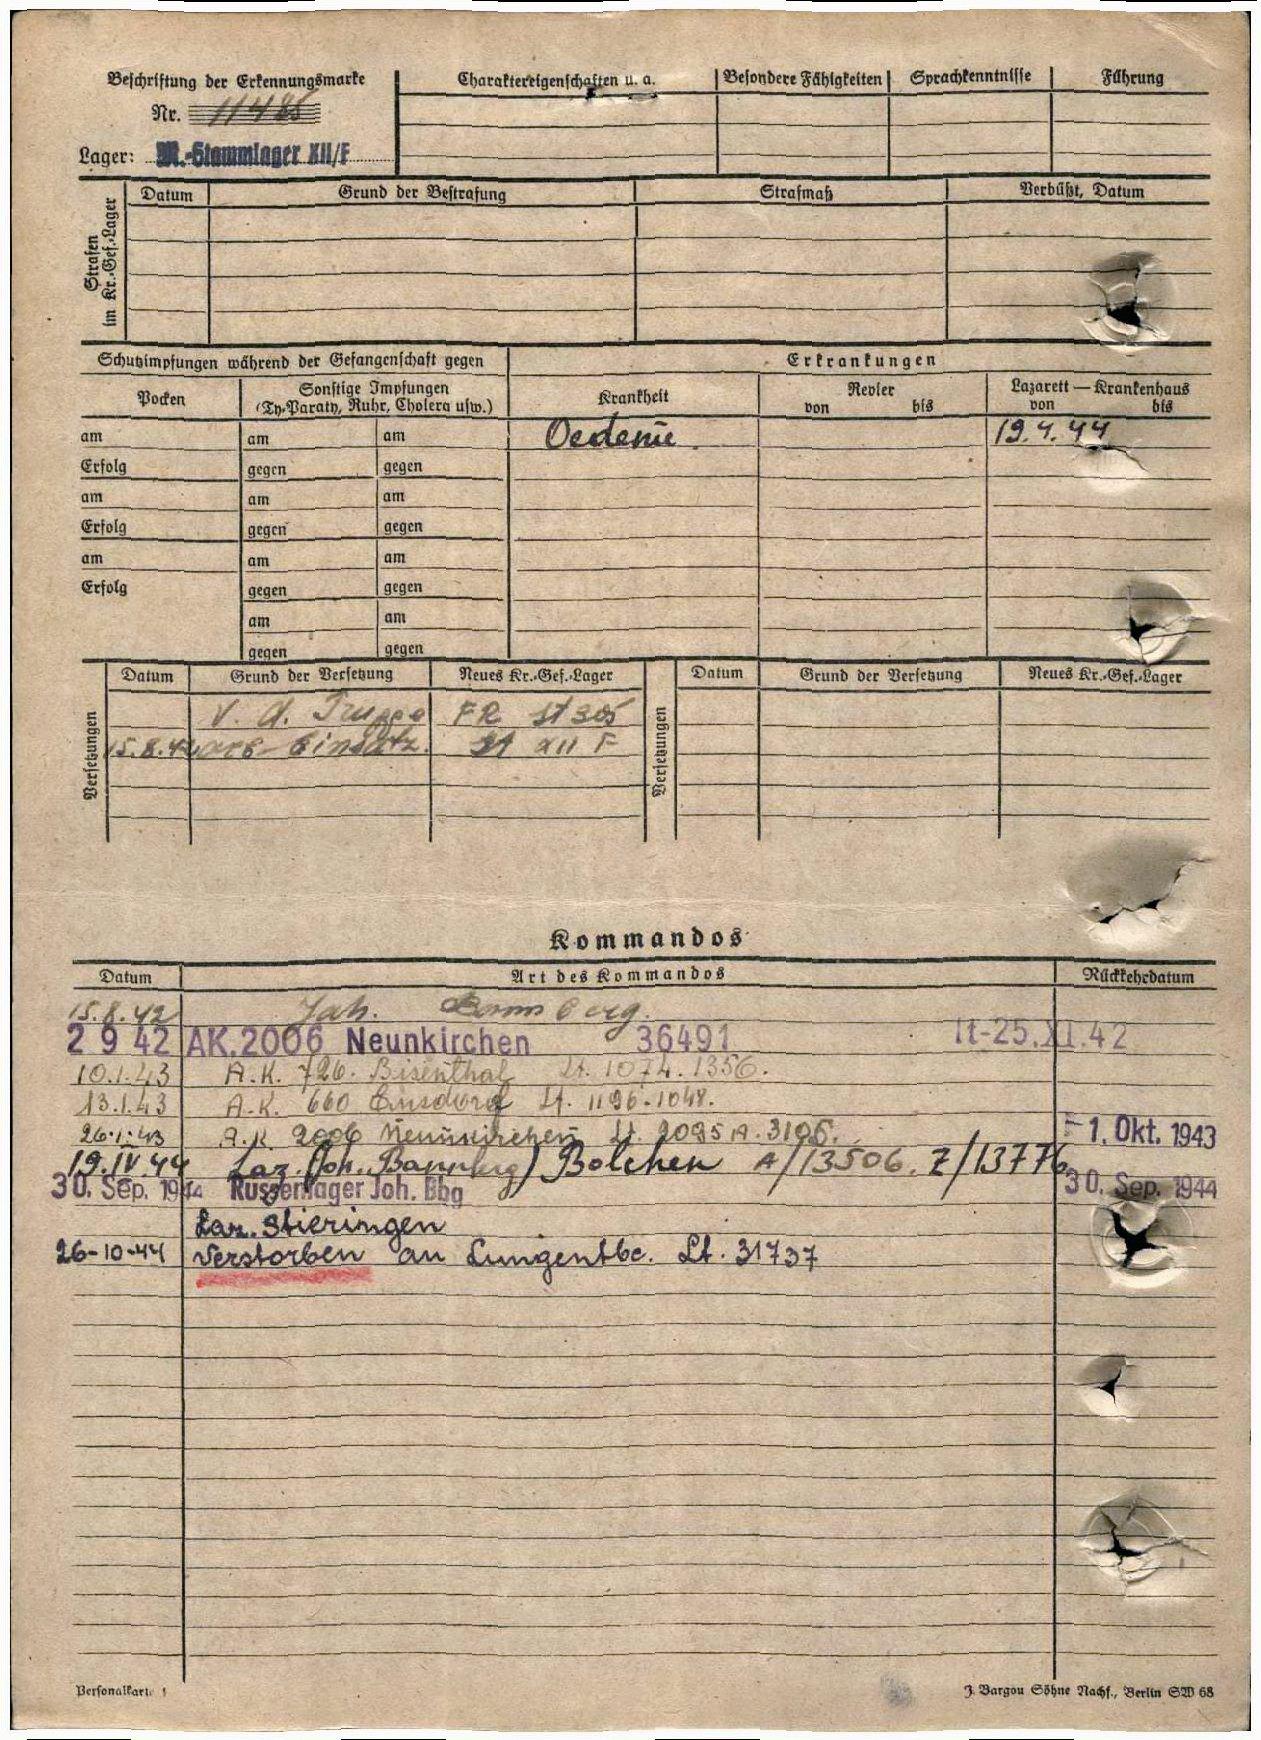 Beschriftung der Erkennungsmarke
Nr. 11485
Lager: M.-Stammlager XII/F
Charaktereigenschaften u. a. Besondere Fähigkeiten Sprachkenntnisse Führung
Strafen im Kr.-Gef.-Lager
Datum Grund der Bestrafung Strafmaß Verbüßt, Datum
Schutzimpfungen während der Gefangenschaft gegen Erkrankungen
Pocken Sonstige Impfungen Krankheit Revier Lazarett — Krankenhaus
(Ty.-Paraty, Ruhr, Cholera usw.) von bis von bis
am am am Oedeme 19.4.44
Erfolg gegen gegen
am am am
Erfolg gegen gegen
am am am
Erfolg gegen gegen
am am
gegen gegen
Versetzungen
Datum Grund der Versetzung Neues Kr.-Gef.-Lager
V. d. Truppe FR St 305
15.8.42 arb-Einsatz. St XII F
Versetzungen
Datum Grund der Versetzung Neues Kr.-Gef.-Lager
Kommandos
Datum Art des Kommandos Rückkehrdatum
15.8.42 Joh.
2 9 42 AK.2006 Neunkirchen 36491 lt-25.XI.42
10.1.43 A.K. 726. Bisenthal Lt. 1074.1356.
13.1.43 A.K. 660 Ensdorf Lt. 1196-1048.
26.1.43 A.K 2006 Neunkirchen Lt. 2095 A. 3105. 1. Okt. 1943
19.IV.44 Laz. (Joh. Bannberg) Bolchen A/13506. Z/13776
30. Sep. 1944 Russenlager Joh. Bbg 30. Sep. 1944
Laz. Stieringen
26-10-44 verstorben an Lungentbc. Lt. 31737
Personalkarte J. Bargou Söhne Nachf., Berlin SW 68